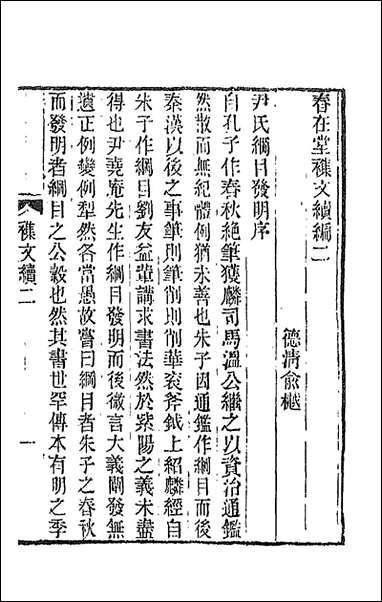 春在堂襍文續編二
德淸俞樾
尹氏綱目發明序
自孔子作春秋絶筆獲麟司馬溫公繼之以資治通鑑
然散而無紀體例猶未善也朱子因通鑑作綱目而後
秦漢以後之事筆則筆削則削華衮斧鉞上紹麟經自
朱子作綱目劉友益輩講求書法然於紫陽之義未盡
得也尹堯庵先生作綱目發明而後微言大義闡發無
遺正例變例犁然各當愚故嘗曰綱目者朱子之春秋
而發明者綱目之公穀也然其書世罕傳本有明之季
襍文續二
一